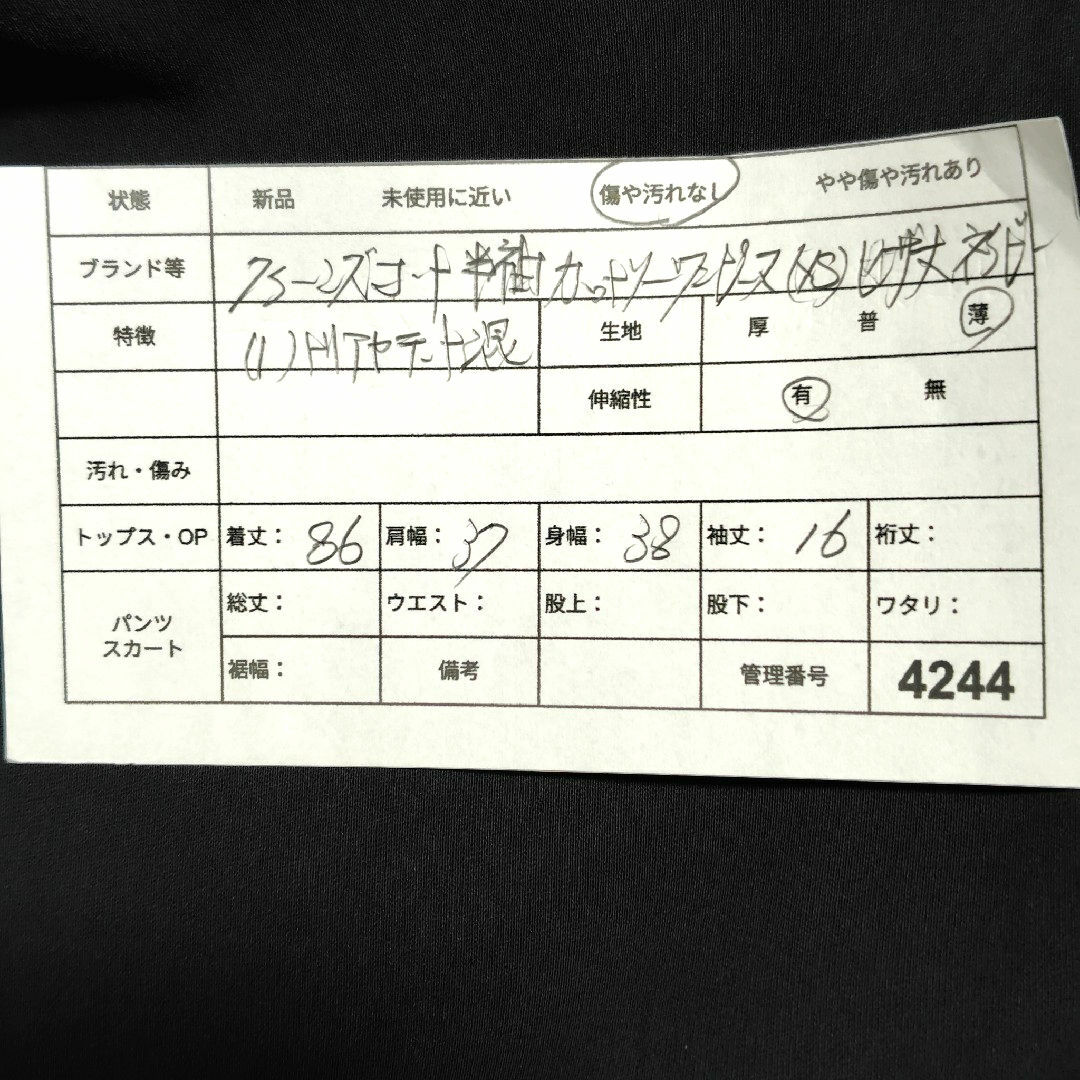 状態 新品 未使用に近い 傷や汚れなし やや傷や汚れあり
ブランド等 半袖 カットソーワンピース (XS) ヒザ丈
特徴 (1) トリアセテート混 生地 厚 普 薄
伸縮性 有 無
汚れ・傷み
トップス・OP 着丈: 86 肩幅: 37 身幅: 38 袖丈: 16 裄丈:
パンツ スカート 総丈: ウエスト: 股上: 股下: ワタリ:
裾幅: 備考 管理番号 4244